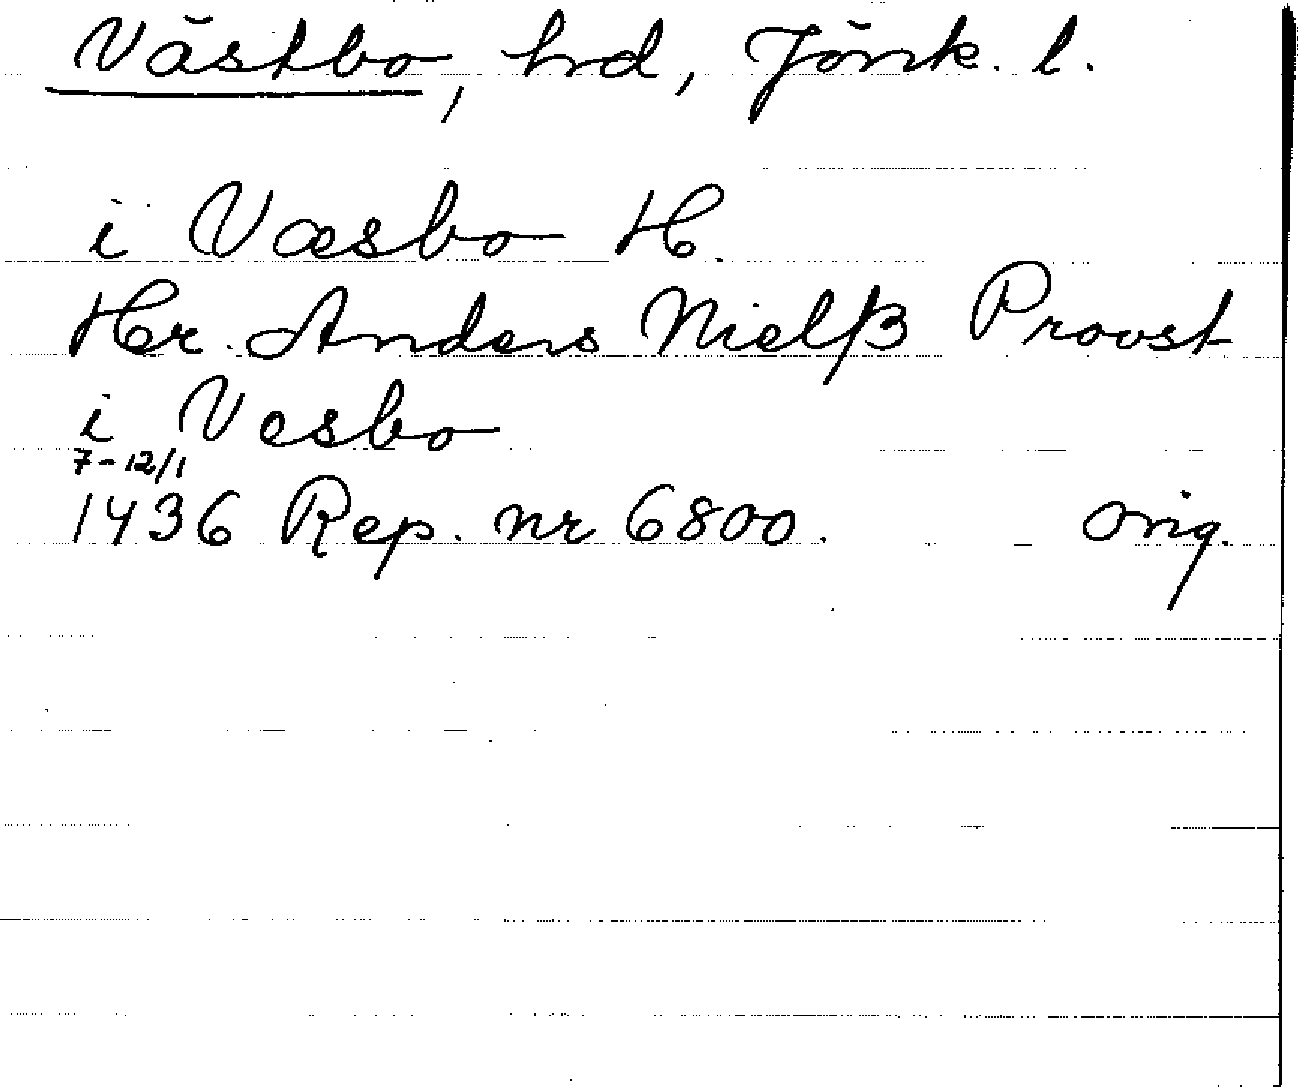 Västbo, hrd, Jönk. l.
i Væsbo H.
Hr. Anders Nielß Provst
i Vesbo
7-12/1
1436 Rep. nr 6800. orig.